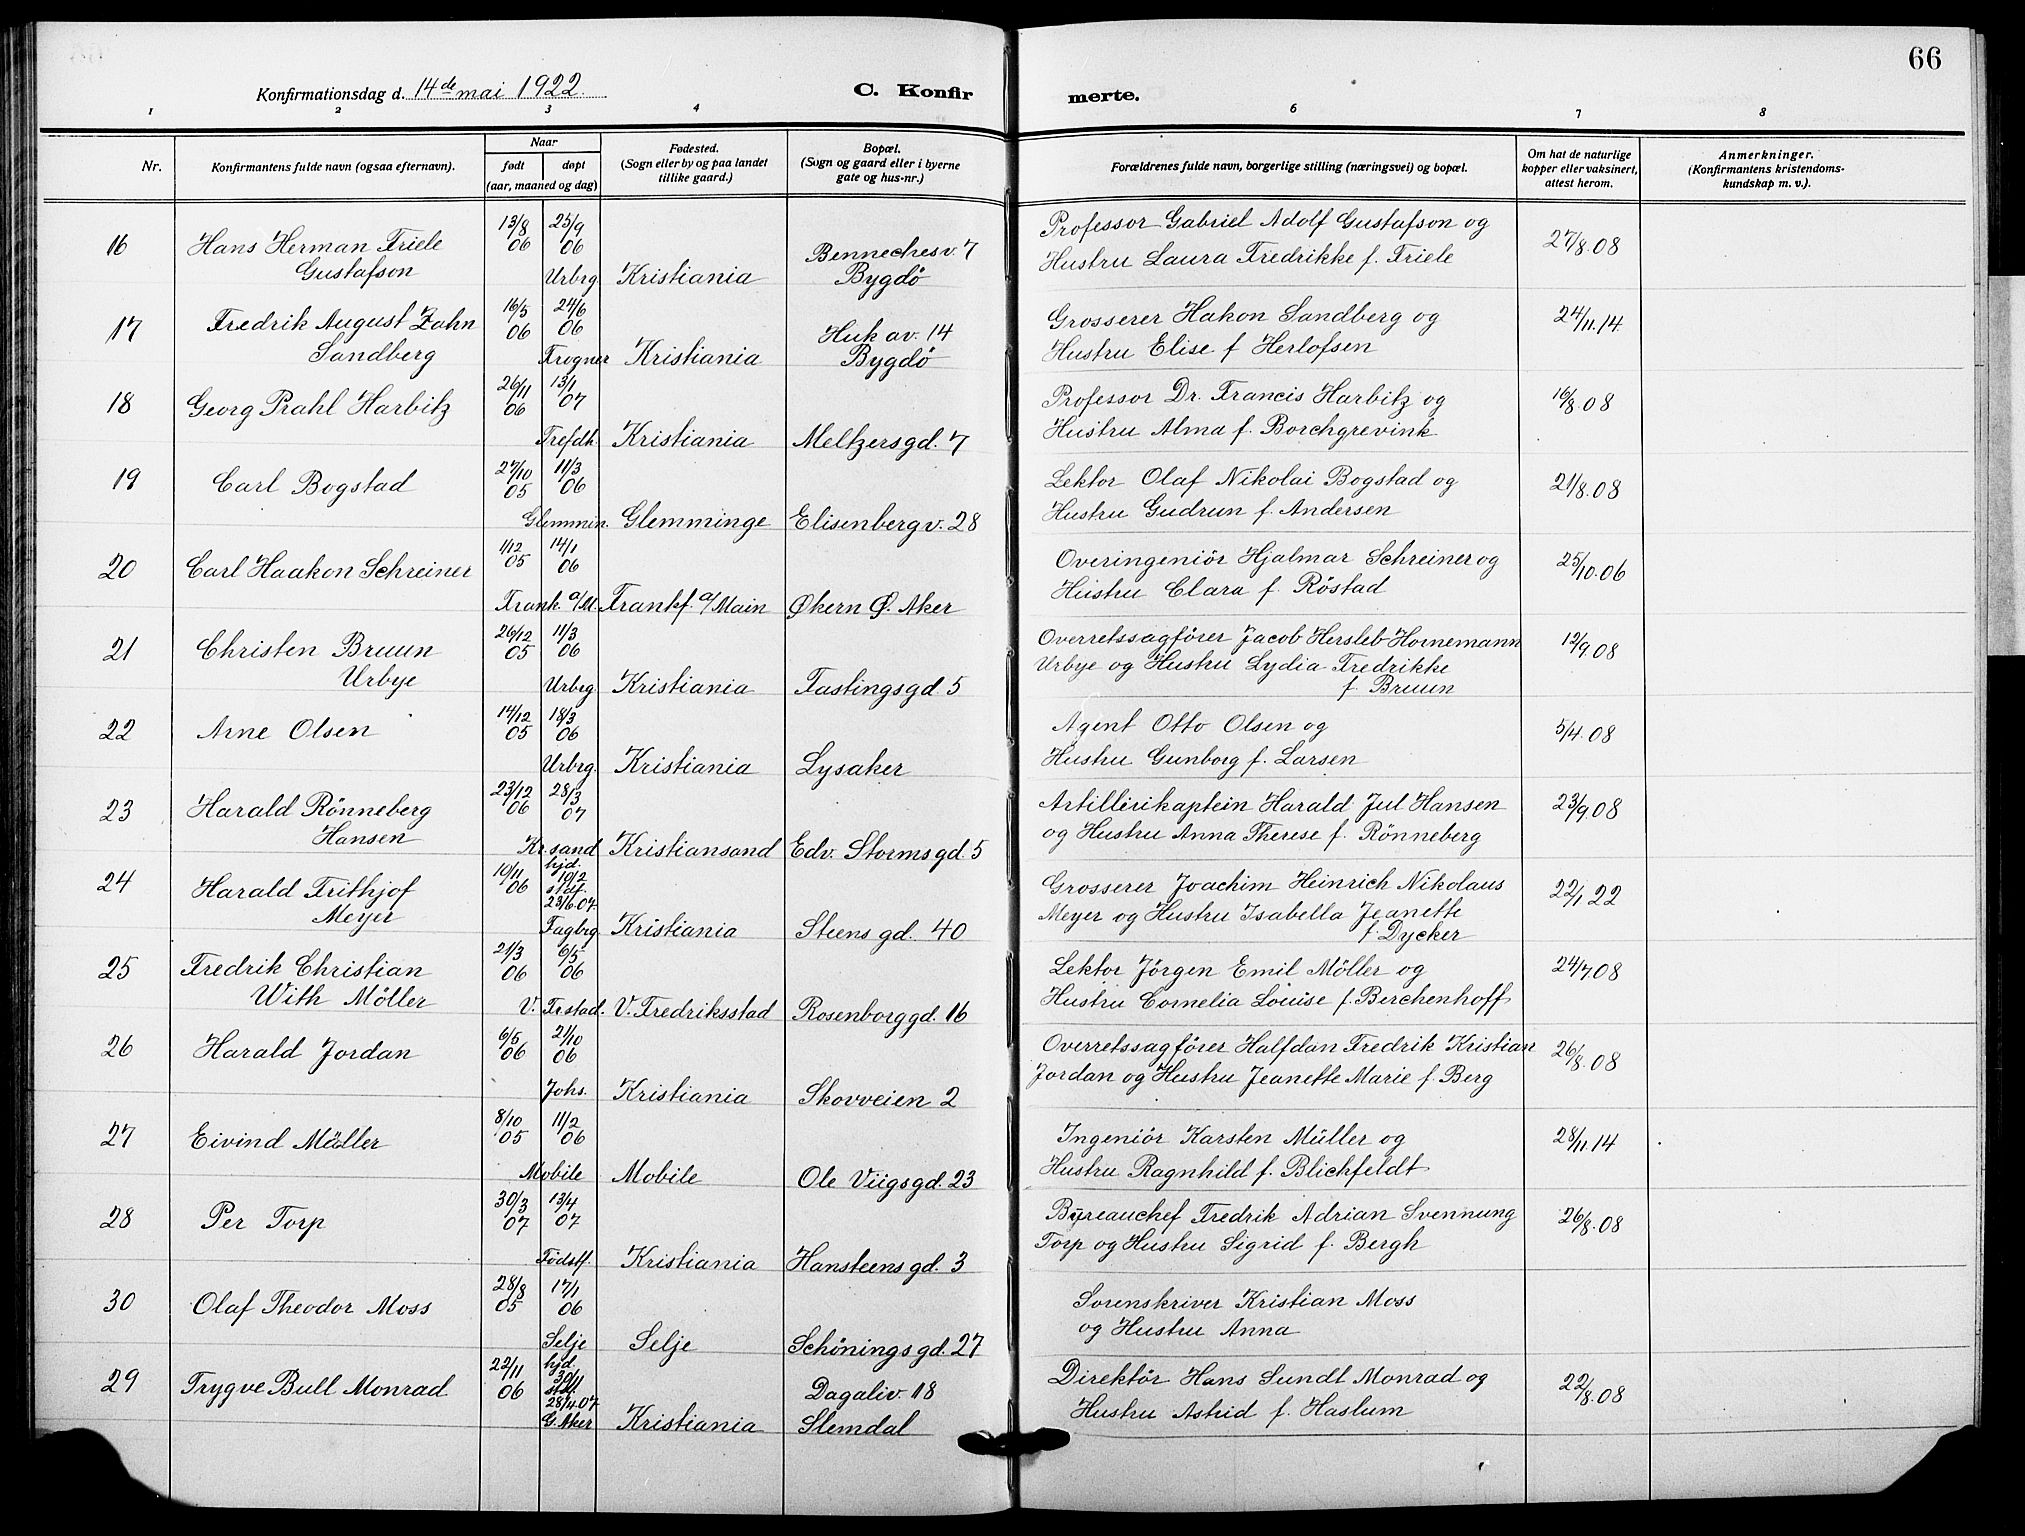 66
Konfirmationsdag d. 14de mai 1922.
C. Konfirmerte.
1 2 3 4 6 7 8
Nr.
Konfirmantens fulde navn (ogsaa efternavn).
Naar
født døpt
(aar, maaned og dag)
Fødested.
(Sogn eller by og paa landet
tillike gaard.)
Bopæl.
(Sogn og gaard eller i byerne
gate og hus-nr.)
Forældrenes fulde navn, borgerlige stilling (næringsvei) og bopæl.
Om hat de naturlige
kopper eller vaksinert,
attest herom.
Anmerkninger.
(Konfirmantens kristendoms-
kundskap m. v.).
16 Hans Herman Friele 13/8 06 25/9 06 Bennechesv. 7 Professor Gabriel Adolf Gustafson og 27/8.08
Gustafson Urbrg. Kristiania Bygdö Hustru Laura Fredrikke f. Friele
17 Fredrik August Zahn 16/5 06 24/6 06 Huk av. 14 Grosserer Hakon Sandberg og 24/11.14
Sandberg Frogner Kristiania Bygdö Hustru Elise f Herlofsen
18 Georg Prahl Harbitz 26/11 06 13/1 07 Professor Dr. Francis Harbitz og 16/8.08
Trefdh. Kristiania Meltzersgd. 7 Hustru Alma f. Borchgrevink
19 Carl Bogstad 27/10 05 11/3 06 Lektor Olaf Nikolai Bogstad og 21/8.08
Glemmin. Glemminge Elisenbergv. 28 Hustru Gudrun f. Andersen
20 Carl Haakon Schreiner 1/12 05 14/1 06 Overingeniör Hjalmar Schreiner og 25/10.06
Frank. a/M. Frankf. a/Main Økern Ø. Aker Hustru Clara f. Röstad
21 Christen Bruun 26/12 05 11/3 06 Overretssagförer Jacob Hersleb Hornemann 12/9.08
Urbye Urbrg Kristiania Fastingsgd. 5 Urbye og Hustru Lydia Fredrikke
f. Bruun
22 Arne Olsen 14/12 05 18/3 06 Agent Otto Olsen og 5/4.08
Urbrg. Kristiania Lysaker Hustru Gunborg f. Larsen
23 Harald Rönneberg 23/12 06 28/3 07 Artillerikaptein Harald Jul Hansen 23/9.08
Hansen Kr.sand Kristiansand Edv. Stormsgd. 5 og Hustru Anna Therese f. Rönneberg
24 Harald Frithjof 10/11 06 hjd. 10/2 stdf. 23/6.07. Grosserer Joachim Heinrich Nikolaus 22/1 22
Meyer Fagbrg Kristiania Steensgd. 40 Meyer og Hustru Isabella Jeanette
f. Dycker
25 Fredrik Christian 21/3 06 6/5 06 Lektor Jörgen Emil Möller og 24/7 08
With Möller V. Frstad. V. Fredriksstad Rosenborggd. 16 Hustru Cornelia Louise f. Berchenhoff
26 Harald Jordan 6/5 06 21/10 06 Overretssagförer Halfdan Fredrik Kristian 26/8.08
Johs. Kristiania Skovveien 2 Jordan og Hustru Jeanette Marie f. Berg
27 Eivind Müller 8/10 05 11/2 06 Ingeniör Karsten Müller og 28/11.14
Mobile Mobile Ole Viigsgd. 23 Hustru Ragnhild f. Blichfeldt
28 Per Torp 30/3 07 13/4 07 Byreauchef Fredrik Adrian Svennung 26/8.08
Födstf. Kristiania Hansteensgd. 3 Torp og Hustru Sigrid f. Bergh
30 Olaf Theodor Moss 28/8 05 17/1 06 Sorenskriver Kristian Moss
Selje Selje Schöningsgd. 27 og Hustru Anna
29 Trygve Bull Monrad 22/11 06 hjd. 30/11 stdf. 28/4.07. Dagaliv. 18 Direktör Hans Sundt Monrad og 22/8.08
G. Aker Kristiania Slemdal Hustru Astrid f. Haslum